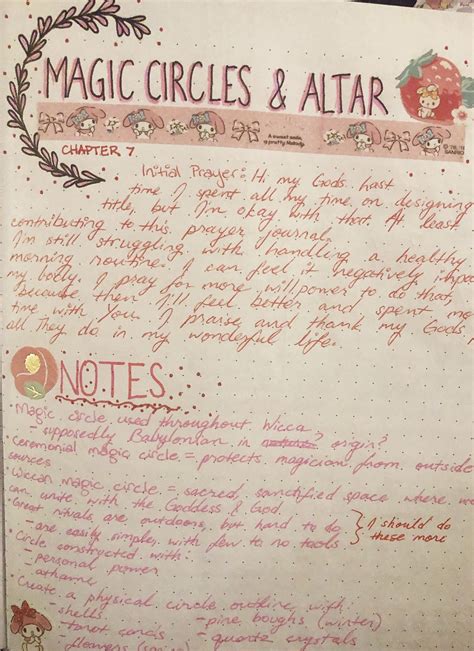 MAGIC CIRCLES & ALTAR
A sweet smile,
a pretty Melody.
© '76, '1
SANRIO
CHAPTER 7
Initial Prayer: Hi my Gods. Last
time I spent all my time on designing
title, but I'm okay with that. At least
contributing to this prayer journal.
I'm still struggling with handling a healthy
morning routine. I can feel it negatively impac
my body. I pray for more willpower to do that,
because then I'll feel better and spent mo
time with You. I praise and thank my Gods
all They do in my wonderful life.
NOTES
Magic circle used throughout Wicca
- supposedly Babylonian in origin?
• Ceremonial magic circle = protects magician from outside
sources
• Wiccan magic circle = sacred, sanctified space where w
can unite with the Goddess & God
• Great rituals are outdoors, but hard to do
- are easily simples with few to no tools
I should do
these more
• Circle constructed with:
- personal power
- athame
• Create a physical circle outline with
- shells
- pine boughs (winter)
- tarot cards
- quartz crystals
- flowers